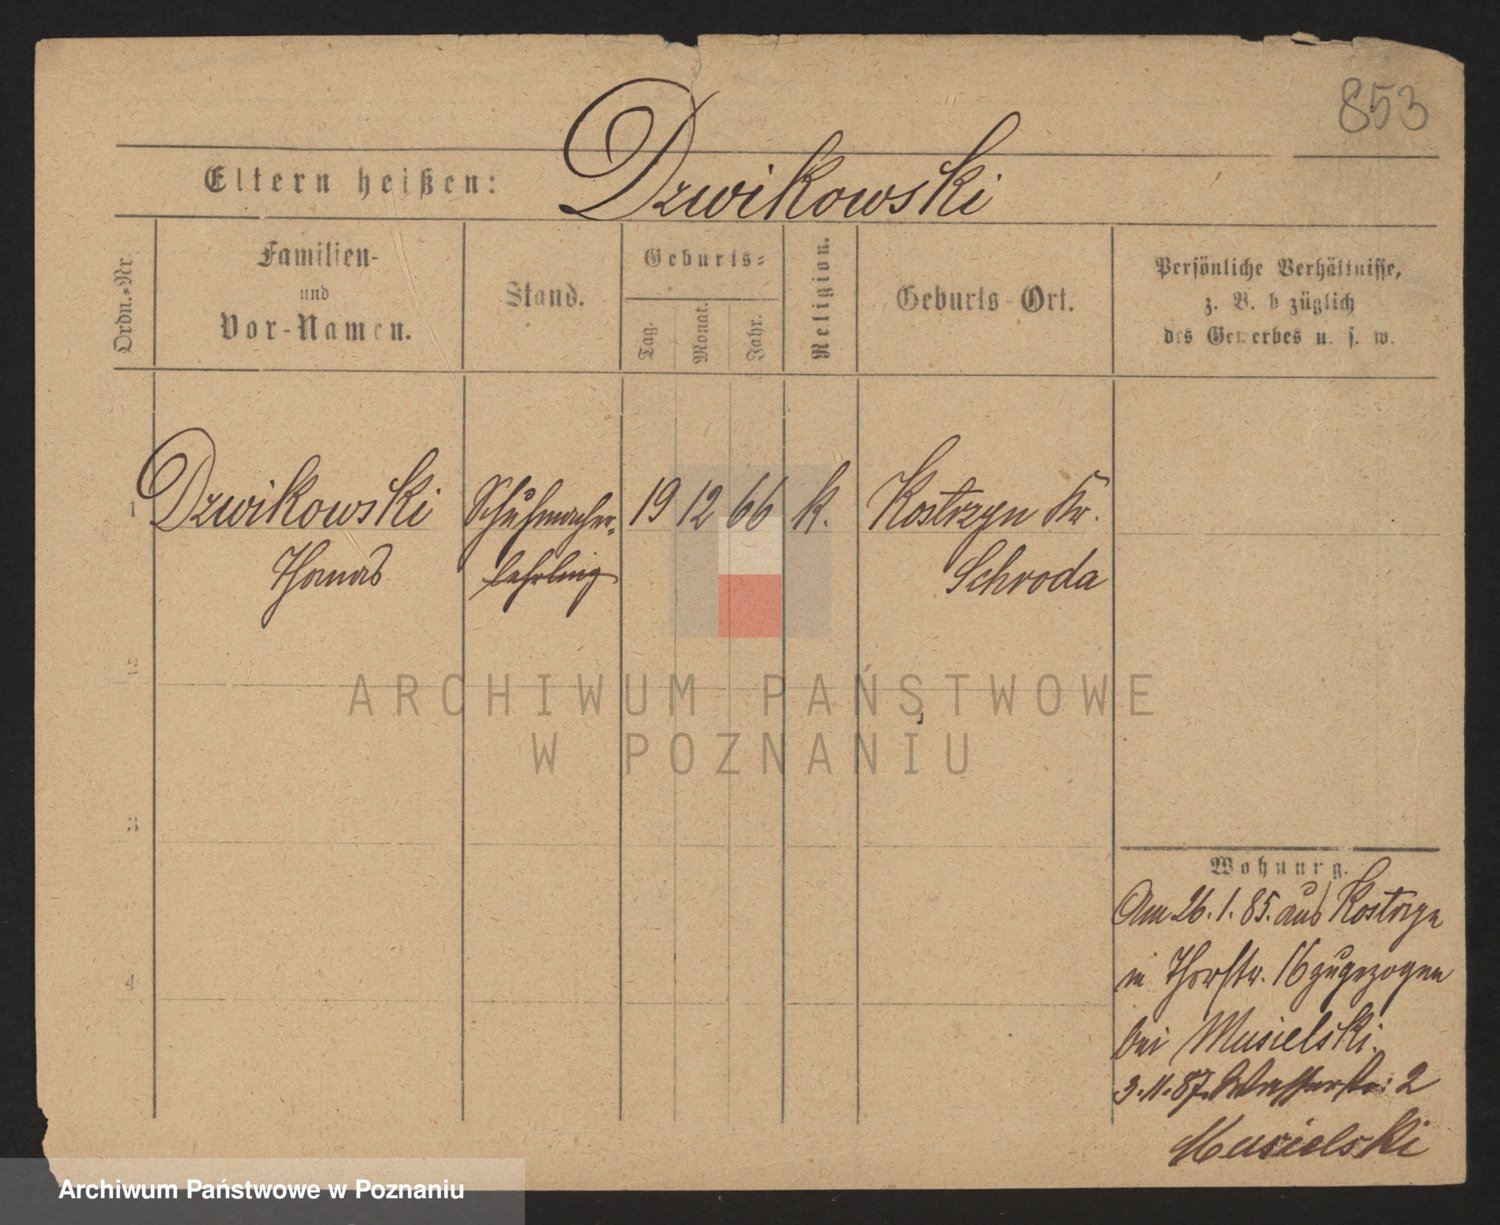 853
Eltern heißen: Dzwikowski
Ordn.-Nr.
Familien-
und
Vor-Namen.
Stand.
Geburts-
Tag.
Monat.
Jahr.
Religion.
Geburts-Ort.
Persönliche Verhältnisse,
z. B. b züglich
des Gewerbes u. s. w.
1 Dzwikowski Schuhmacher- 19 12 66 k. Kostrzyn Kr.
Thomas lehrling Schroda
2
ARCHIWUM PAŃSTWOWE
W POZNANIU
3
Wohnung.
Am 26.1.85. aus Kostrzyn
in Thorstr. 16 zugezogen
4
bei Musielski.
3.11.87. Wasserstr: 2
Musielski
Archiwum Państwowe w Poznaniu